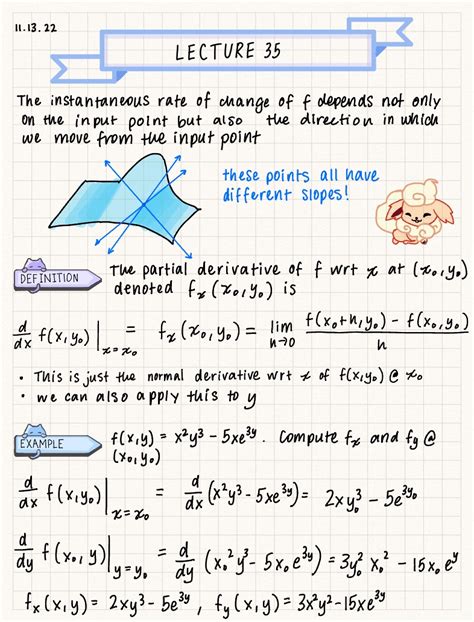 11.13.22
LECTURE 35
The instantaneous rate of change of f depends not only
on the input point but also the direction in which
we move from the input point
these points all have
different slopes!
DEFINITION
The partial derivative of f wrt x at (x₀,y₀)
denoted fₓ(x₀,y₀) is
d/dx f(x,y₀)|ₓ₌ₓ₀ = fₓ(x₀,y₀) = lim h→0 (f(x₀+h,y₀) - f(x₀,y₀))/h
• This is just the normal derivative wrt x of f(x,y₀) @ x₀
• we can also apply this to y
EXAMPLE
f(x,y) = x²y³ - 5xe³ʸ. Compute fₓ and f_y @
(x₀,y₀)
d/dx f(x,y₀)|ₓ₌ₓ₀ = d/dx (x²y³ - 5xe³ʸ) = 2xy₀³ - 5e^(3y₀)
d/dy f(x₀,y)|_(y=y₀) = d/dy (x₀²y³ - 5x₀e³ʸ) = 3y₀²x₀² - 15x₀eʸ
fₓ(x,y) = 2xy³ - 5e³ʸ, f_y(x,y) = 3x²y² - 15xe³ʸ